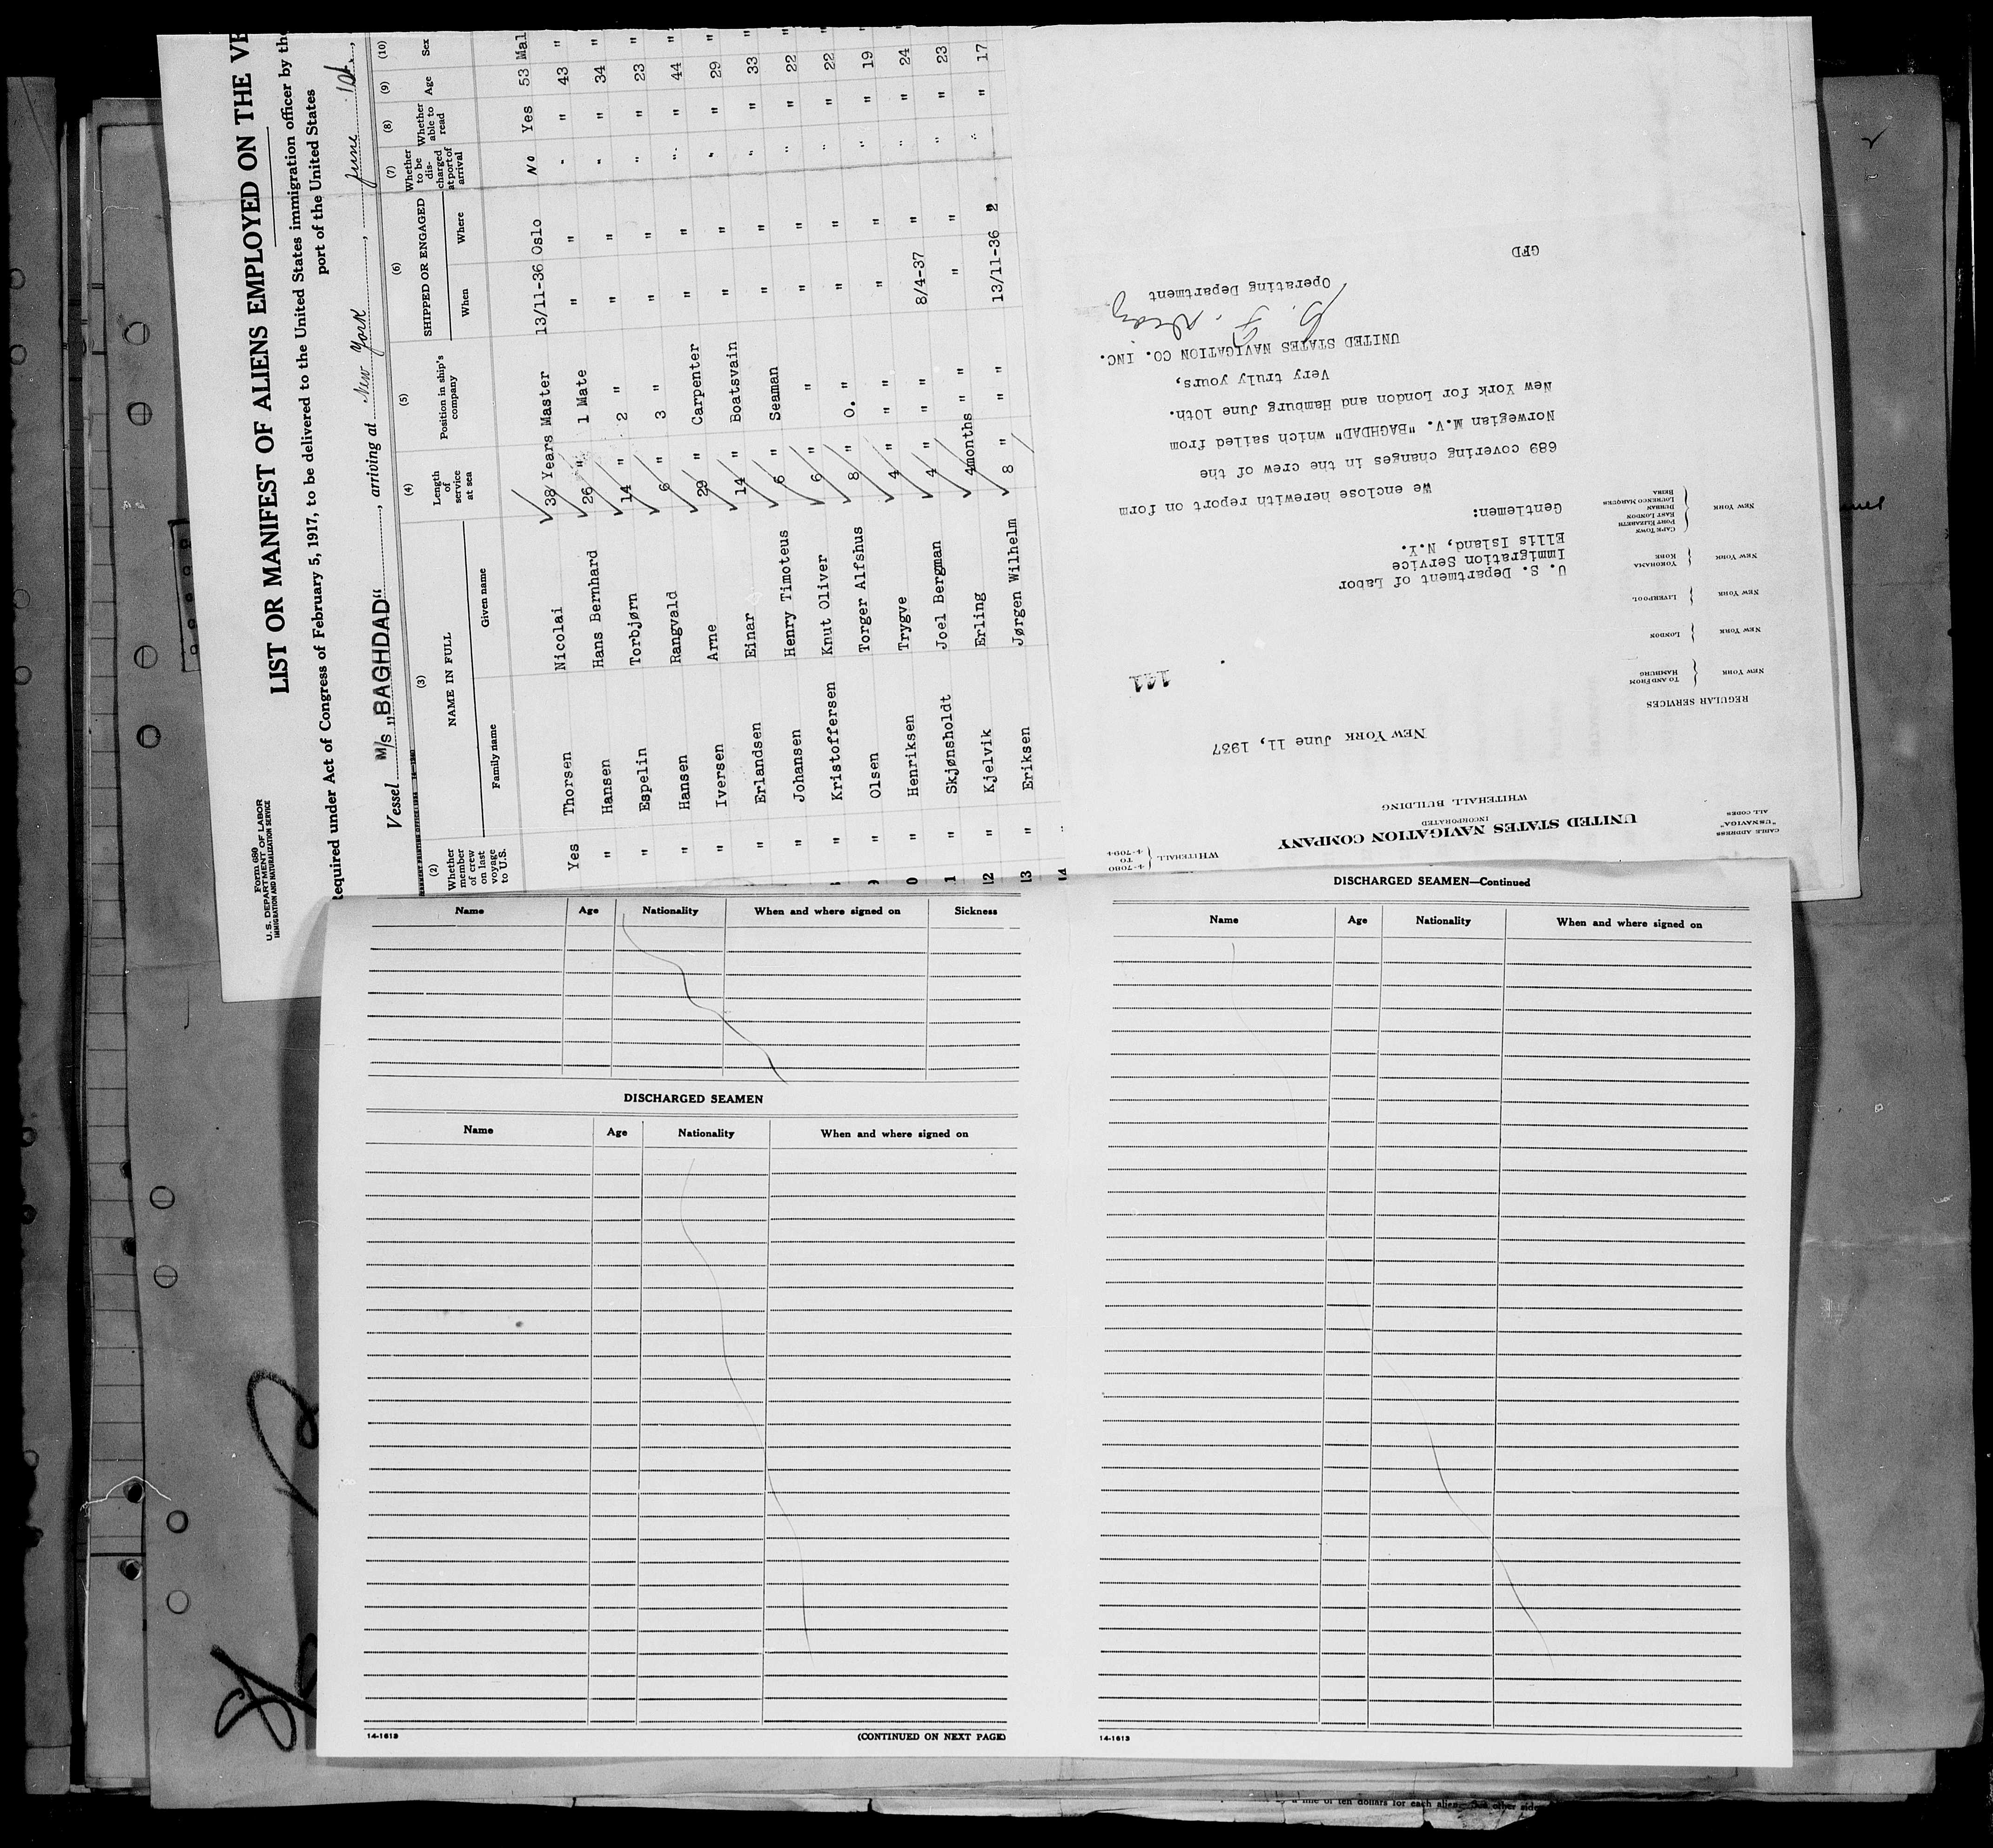 Form 680
U. S. DEPARTMENT OF LABOR
IMMIGRATION AND NATURALIZATION SERVICE
LIST OR MANIFEST OF ALIENS EMPLOYED ON THE VE
Required under Act of Congress of February 5, 1917, to be delivered to the United States immigration officer by the
port of the United States
Vessel M/s „BAGHDAD“, arriving at New York, June 1st,
(2) (3) (4) (5) (6) (7) (8) (9) (10)
Whether member of crew on last voyage to U.S. NAME IN FULL Family name Given name Length of service at sea Position in ship's company SHIPPED OR ENGAGED When Where Whether to be discharged at port of arrival Whether able to read Age Sex
Yes Thorsen Nicolai 38 Years Master 13/11-36 Oslo No Yes 53 Mal
" Hansen Hans Bernhard 26 " 1 Mate " " " " 43 "
" Espelin Torbjørn 14 " 2 " " " " " 34 "
" Hansen Rangvald 6 " 3 " " " " " 23 "
" Iversen Arne 29 " Carpenter " " " " 44 "
" Erlandsen Einar 14 " Boatsvain " " " " 29 "
" Johansen Henry Timoteus 6 " Seaman " " " " 33 "
" Kristoffersen Knut Oliver 6 " " " " " " 22 "
" Olsen Torger Alfshus 8 " O. " " " " " 22 "
" Henriksen Trygve 4 " " " " " " " 19 "
" Skjønsholdt Joel Bergman 4 " " " 8/4-37 " " " 24 "
" Kjelvik Erling 4months " " " " " " 23
" Eriksen Jørgen Wilhelm 8 " " " 13/11-36 2 " " 17
CABLE ADDRESS
"USNAVIGA"
ALL CODES
UNITED STATES NAVIGATION COMPANY
INCORPORATED
WHITEHALL BUILDING
WHITEHALL { 4-7080 TO 4-7094
NEW YORK June 11, 1937
REGULAR SERVICES
TO AND FROM
NEW YORK } { HAMBURG
NEW YORK } { LONDON
NEW YORK } { LIVERPOOL
NEW YORK } { YOKOHAMA KOBE
NEW YORK } { CAPE TOWN PORT ELIZABETH EAST LONDON DURBAN LOURENCO MARQUES BEIRA
141
U. S. Department of Labor
Immigration Service
Ellis Island, N.Y.
Gentlemen:
We enclose herewith report on form
689 covering changes in the crew of the
Norwegian M.V. "BAGHDAD" which sailed from
New York for London and Hamburg June 10th.
Very truly yours,
UNITED STATES NAVIGATION CO. INC.
Operating Department
GFD
Name Age Nationality When and where signed on Sickness
DISCHARGED SEAMEN
Name Age Nationality When and where signed on
14-1613
(CONTINUED ON NEXT PAGE)
DISCHARGED SEAMEN—Continued
Name Age Nationality When and where signed on
14-1613
of ten dollars for each alien